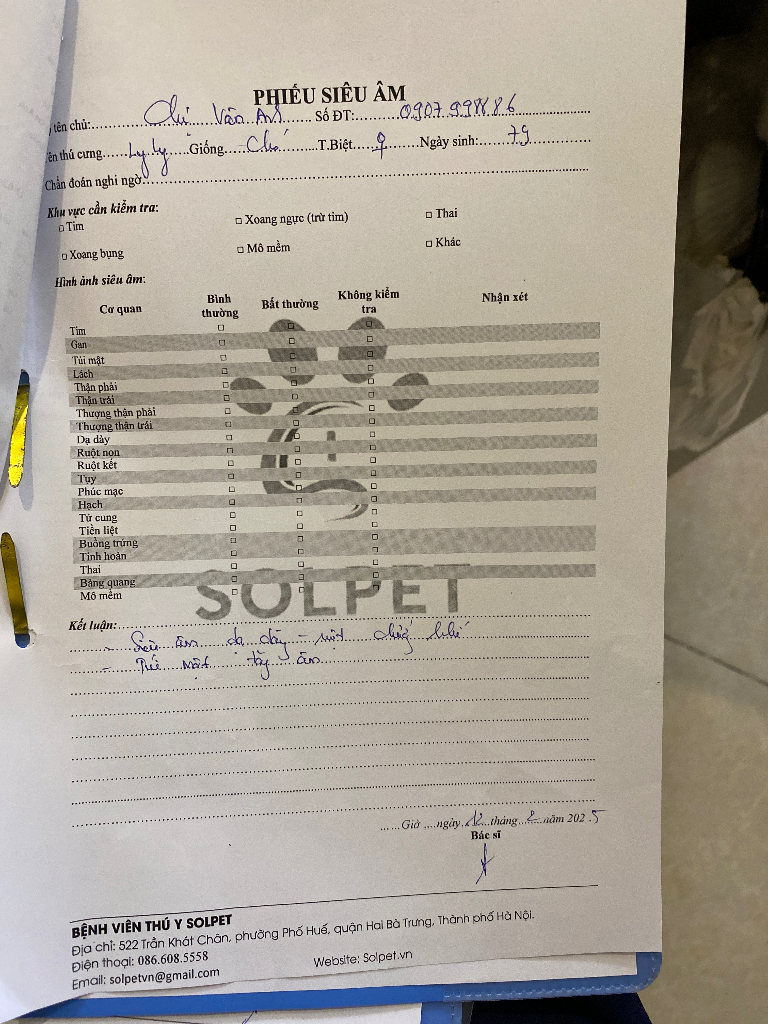 PHIẾU SIÊU ÂM
tên chủ: Chị Vân Anh Số ĐT: 0907998686
ên thú cưng Ly Ly Giống Chó T.Biệt ♀ Ngày sinh: 7g
Chẩn đoán nghi ngờ:
Khu vực cần kiểm tra:
□ Tim □ Xoang ngực (trừ tim) □ Thai
□ Xoang bụng □ Mô mềm □ Khác
Hình ảnh siêu âm:
Cơ quan Bình thường Bất thường Không kiểm tra Nhận xét
Tim □ □ □
Gan □ □ □
Túi mật □ □ □
Lách □ □ □
Thận phải □ □ □
Thận trái □ □ □
Thượng thận phải □ □ □
Thượng thận trái □ □ □
Dạ dày □ □ □
Ruột non □ □ □
Ruột kết □ □ □
Tụy □ □ □
Phúc mạc □ □ □
Hạch □ □ □
Tử cung □ □ □
Tiền liệt □ □ □
Buồng trứng □ □ □
Tinh hoàn □ □ □
Thai □ □ □
Bàng quang □ □ □
Mô mềm □ □ □
SOLPET
Kết luận:
- Siêu âm dạ dày - ruột khí
- Túi mật âm
Giờ ngày 12 tháng 2 năm 2025
Bác sĩ
BỆNH VIÊN THÚ Y SOLPET
Địa chỉ: 522 Trần Khát Chân, phường Phố Huế, quận Hai Bà Trưng, Thành phố Hà Nội.
Điện thoại: 086.608.5558
Website: Solpet.vn
Email: solpetvn@gmail.com